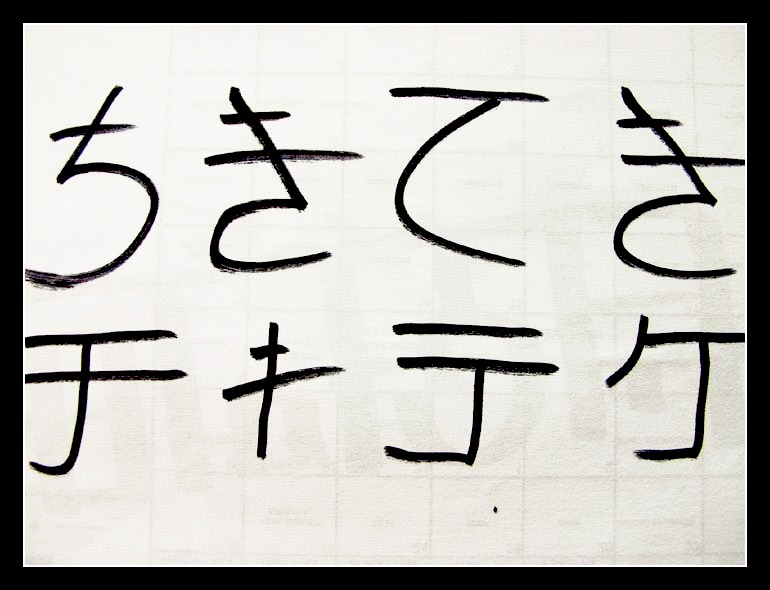 ちきてき
チキテケ